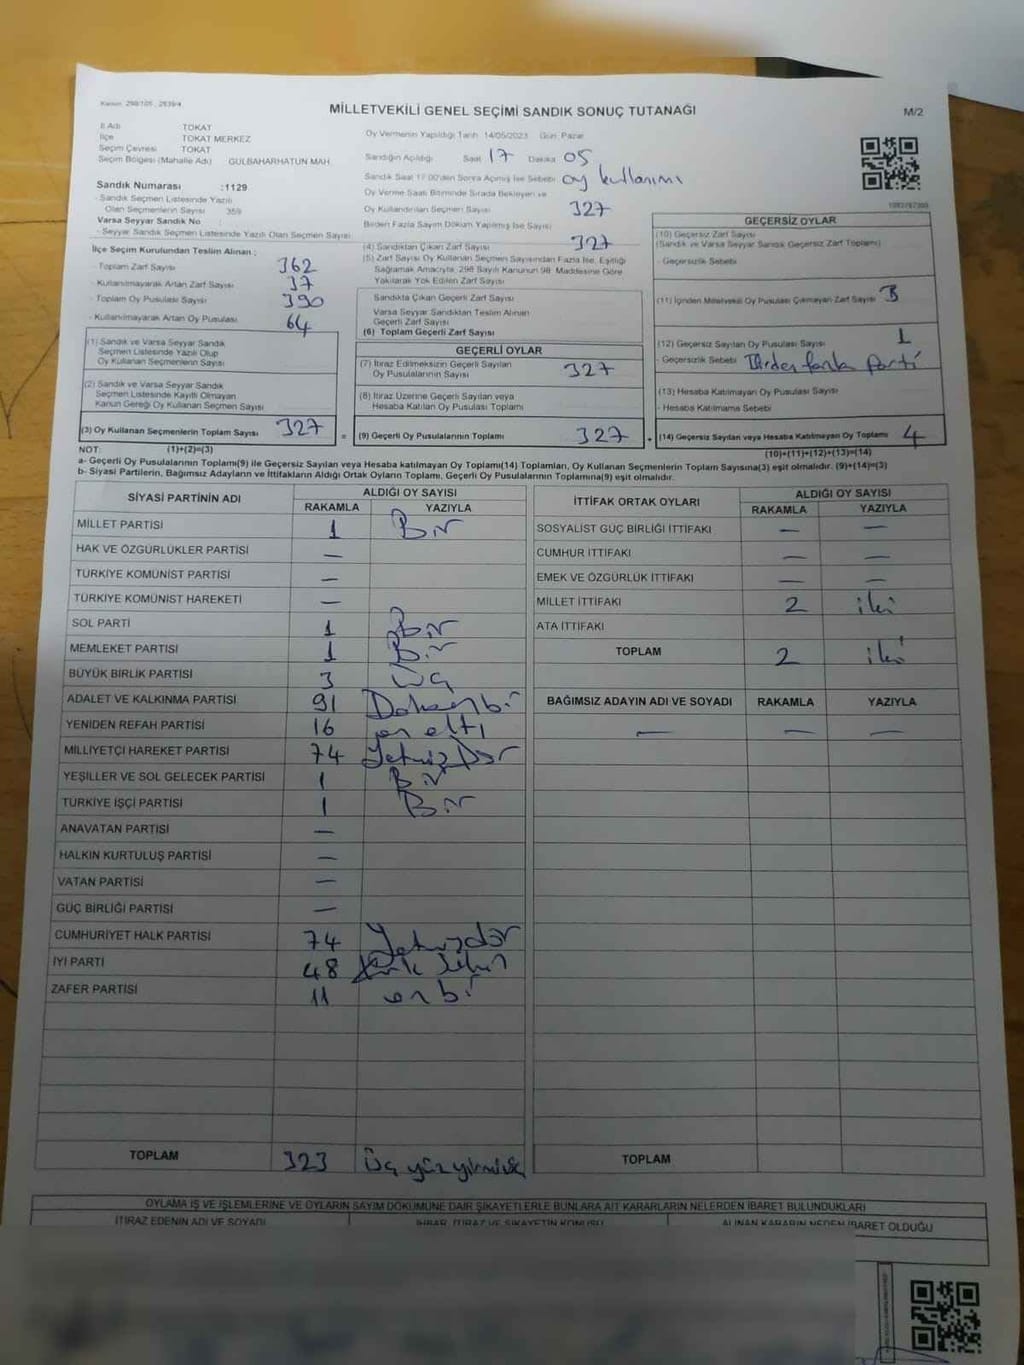 Kanun: 298/105 , 2839/4
MİLLETVEKİLİ GENEL SEÇİMİ SANDIK SONUÇ TUTANAĞI
M/2
İl Adı TOKAT
İlçe TOKAT MERKEZ
Seçim Çevresi TOKAT
Seçim Bölgesi (Mahalle Adı) GÜLBAHARHATUN MAH.
Sandık Numarası :1129
- Sandık Seçmen Listesinde Yazılı
Olan Seçmenlerin Sayısı 359
Varsa Seyyar Sandık No
- Seyyar Sandık Seçmen Listesinde Yazılı Olan Seçmen Sayısı
İlçe Seçim Kurulundan Teslim Alınan :
- Toplam Zarf Sayısı 362
- Kullanılmayarak Artan Zarf Sayısı 37
- Toplam Oy Pusulası Sayısı 390
- Kullanılmayarak Artan Oy Pusulası 64
(1) Sandık ve Varsa Seyyar Sandık
Seçmen Listesinde Yazılı Olup
Oy Kullanan Seçmenlerin Sayısı
(2) Sandık ve Varsa Seyyar Sandık
Seçmen Listesinde Kayıtlı Olmayan
Kanun Gereği Oy Kullanan Seçmen Sayısı
(3) Oy Kullanan Seçmenlerin Toplam Sayısı 327
Oy Vermenin Yapıldığı Tarih 14/05/2023 Gün Pazar
Sandığın Açıldığı Saat 17 Dakika 05
Sandık Saat 17:00'den Sonra Açılmış İse Sebebi oy kullanımı
Oy Verme Saati Bitiminde Sırada Bekleyen ve
Oy Kullandırılan Seçmen Sayısı 327
Birden Fazla Sayım Döküm Yapılmış İse Sayısı
(4) Sandıktan Çıkan Zarf Sayısı 327
(5) Zarf Sayısı Oy Kullanan Seçmen Sayısından Fazla İse, Eşitliği
Sağlamak Amacıyla, 298 Sayılı Kanunun 98. Maddesine Göre
Yakılarak Yok Edilen Zarf Sayısı
Sandıkta Çıkan Geçerli Zarf Sayısı
Varsa Seyyar Sandıktan Teslim Alınan
Geçerli Zarf Sayısı
(6) Toplam Geçerli Zarf Sayısı
GEÇERLİ OYLAR
(7) İtiraz Edilmeksizin Geçerli Sayılan
Oy Pusulalarının Sayısı 327
(8) İtiraz Üzerine Geçerli Sayılan veya
Hesaba Katılan Oy Pusulası Toplamı
= (9) Geçerli Oy Pusulalarının Toplamı 327
GEÇERSİZ OYLAR
(10) Geçersiz Zarf Sayısı
(Sandık ve Varsa Seyyar Sandık Geçersiz Zarf Toplamı)
- Geçersizlik Sebebi
(11) İçinden Milletvekili Oy Pusulası Çıkmayan Zarf Sayısı 3
(12) Geçersiz Sayılan Oy Pusulası Sayısı 1
- Geçersizlik Sebebi Birden fazla parti
(13) Hesaba Katılmayan Oy Pusulası Sayısı
- Hesaba Katılmama Sebebi
+ (14) Geçersiz Sayılan veya Hesaba Katılmayan Oy Toplamı 4
NOT: (1)+(2)=(3)
(10)+(11)+(12)+(13)=(14)
a- Geçerli Oy Pusulalarının Toplamı(9) ile Geçersiz Sayılan veya Hesaba katılmayan Oy Toplamı(14) Toplamları, Oy Kullanan Seçmenlerin Toplam Sayısına(3) eşit olmalıdır. (9)+(14)=(3)
b- Siyasi Partilerin, Bağımsız Adayların ve İttifakların Aldığı Ortak Oyların Toplamı, Geçerli Oy Pusulalarının Toplamına(9) eşit olmalıdır.
SİYASİ PARTİNİN ADI ALDIĞI OY SAYISI
RAKAMLA YAZIYLA
MİLLET PARTİSİ 1 Bir
HAK VE ÖZGÜRLÜKLER PARTİSİ —
TÜRKİYE KOMÜNİST PARTİSİ —
TÜRKİYE KOMÜNİST HAREKETİ —
SOL PARTİ 1 Bir
MEMLEKET PARTİSİ 1 Bir
BÜYÜK BİRLİK PARTİSİ 3 Üç
ADALET VE KALKINMA PARTİSİ 91 Doksanbi
YENİDEN REFAH PARTİSİ 16 on altı
MİLLİYETÇİ HAREKET PARTİSİ 74 Yetmiş Dör
YEŞİLLER VE SOL GELECEK PARTİSİ 1 Bir
TÜRKİYE İŞÇİ PARTİSİ 1 Bir
ANAVATAN PARTİSİ —
HALKIN KURTULUŞ PARTİSİ —
VATAN PARTİSİ —
GÜÇ BİRLİĞİ PARTİSİ —
CUMHURİYET HALK PARTİSİ 74 Yetmişdör
İYİ PARTİ 48 Kırk Sekiz
ZAFER PARTİSİ 11 on bi
TOPLAM 323 Üç yüz yirmi üç
İTTİFAK ORTAK OYLARI ALDIĞI OY SAYISI
RAKAMLA YAZIYLA
SOSYALİST GÜÇ BİRLİĞİ İTTİFAKI — —
CUMHUR İTTİFAKI — —
EMEK VE ÖZGÜRLÜK İTTİFAKI — —
MİLLET İTTİFAKI 2 iki
ATA İTTİFAKI
TOPLAM 2 iki
BAĞIMSIZ ADAYIN ADI VE SOYADI RAKAMLA YAZIYLA
— — —
TOPLAM
OYLAMA İŞ VE İŞLEMLERİNE VE OYLARIN SAYIM DÖKÜMÜNE DAİR ŞİKAYETLERLE BUNLARA AİT KARARLARIN NELERDEN İBARET BULUNDUKLARI
İTİRAZ EDENİN ADI VE SOYADI İHBAR, İTİRAZ VE ŞİKAYETİN KONUSU ALINAN KARARIN NEDEN İBARET OLDUĞU